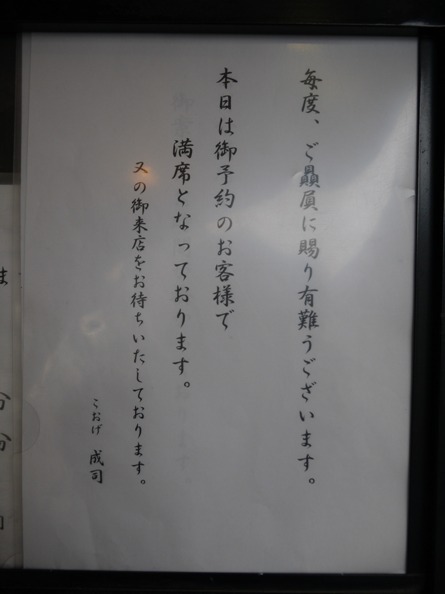 毎度、ご贔屓に賜り有難うございます。
本日は御予約のお客様で
満席となっております。
又の御来店をお待ちいたしております。
こおげ 成司